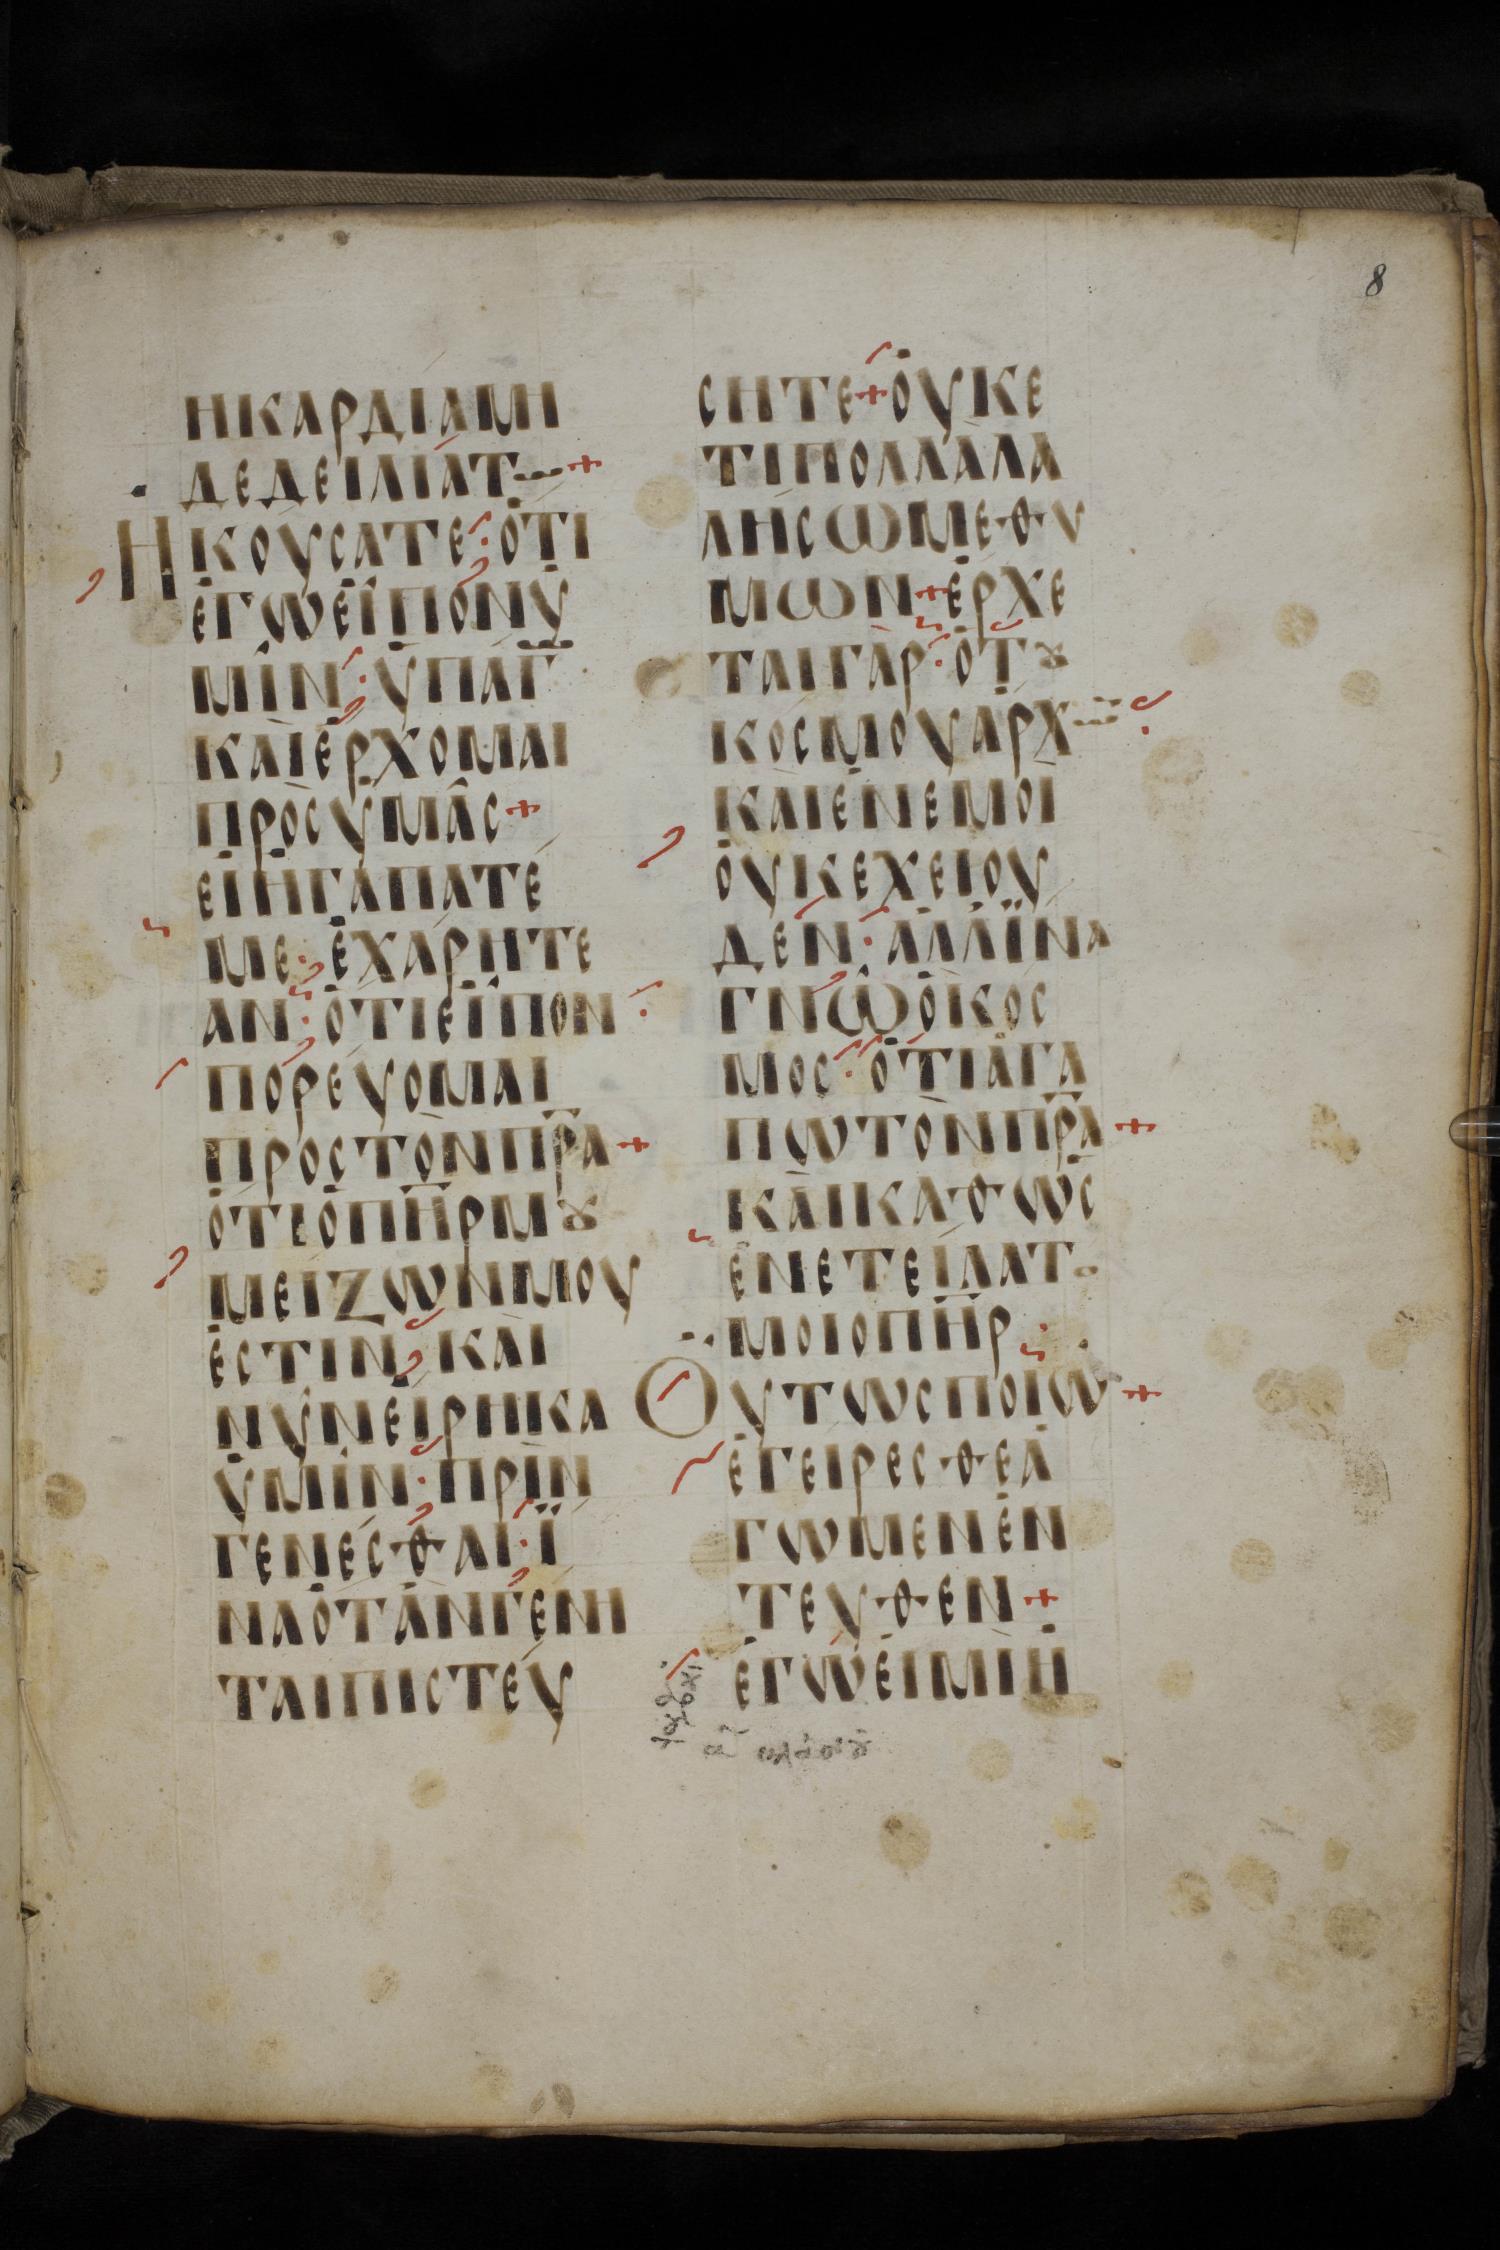 8
ΗΚΑΡΔΙΑΜΗ
ΔΕΔΕΙΛΙΑΤ
ΗΚΟΥΣΑΤΕ· ὍΤΙ
ἘΓΩΕἾΠΟΝΥ
ΜΙΝ· ὙΠΑΓ
ΚΑΙΕΡΧΟΜΑΙ
ΠΡΟΣΥΜΑΣ+
ΕΙΗΓΑΠΑΤΕ
ΜΕ· ΕΧΑΡΗΤΕ
ΑΝ· ΟΤΙΕΙΠΟΝ·
ΠΟΡΕΥΟΜΑΙ
ΠΡΟΣΤΟΝΠΡΑ+
ΟΤΙΟΠΗΡΜȢ
ΜΕΙΖΩΝΜΟΥ
ΕΣΤΙΝ· ΚΑΙ
ΝΥΝΕΙΡΗΚΑ
ΥΜΙΝ· ΠΡΙΝ
ΓΕΝΕΣΘΑΙ· Ϊ
ΝΑΟΤΑΝΓΕΝΗ
ΤΑΙΠΙΣΤΕΥ
ΣΗΤΕ+ΟΥΚΕ
ΤΙΠΟΛΛΑΛΑ
ΛΗΣΩΜΕΘΥ
ΜΩΝ+ΕΡΧΕ
ΤΑΙΓΑΡ· ΟΤȢ
ΚΟΣΜΟΥΑΡΧ
ΚΑΙΕΝΕΜΟΙ
ΟΥΚΕΧΕΙΟΥ
ΔΕΝ· ΑΛΛΪΝΑ
ΓΝΩΟΚΟΣ
ΜΟΣ· ΟΤΙΑΓΑ
ΠΩΤΟΝΠΡΑ+
ΚΑΙΚΑΘΩΣ
ΕΝΕΤΕΙΛΑΤΟ
ΜΟΙΟΠΗΡ
ΟΥΤΩΣΠΟΙΩ+
ΕΓΕΙΡΕΣΘΕΑ
ΓΩΜΕΝΕΝ
ΤΕΥΘΕΝ+
ΕΓΩΕΙΜΙΗ